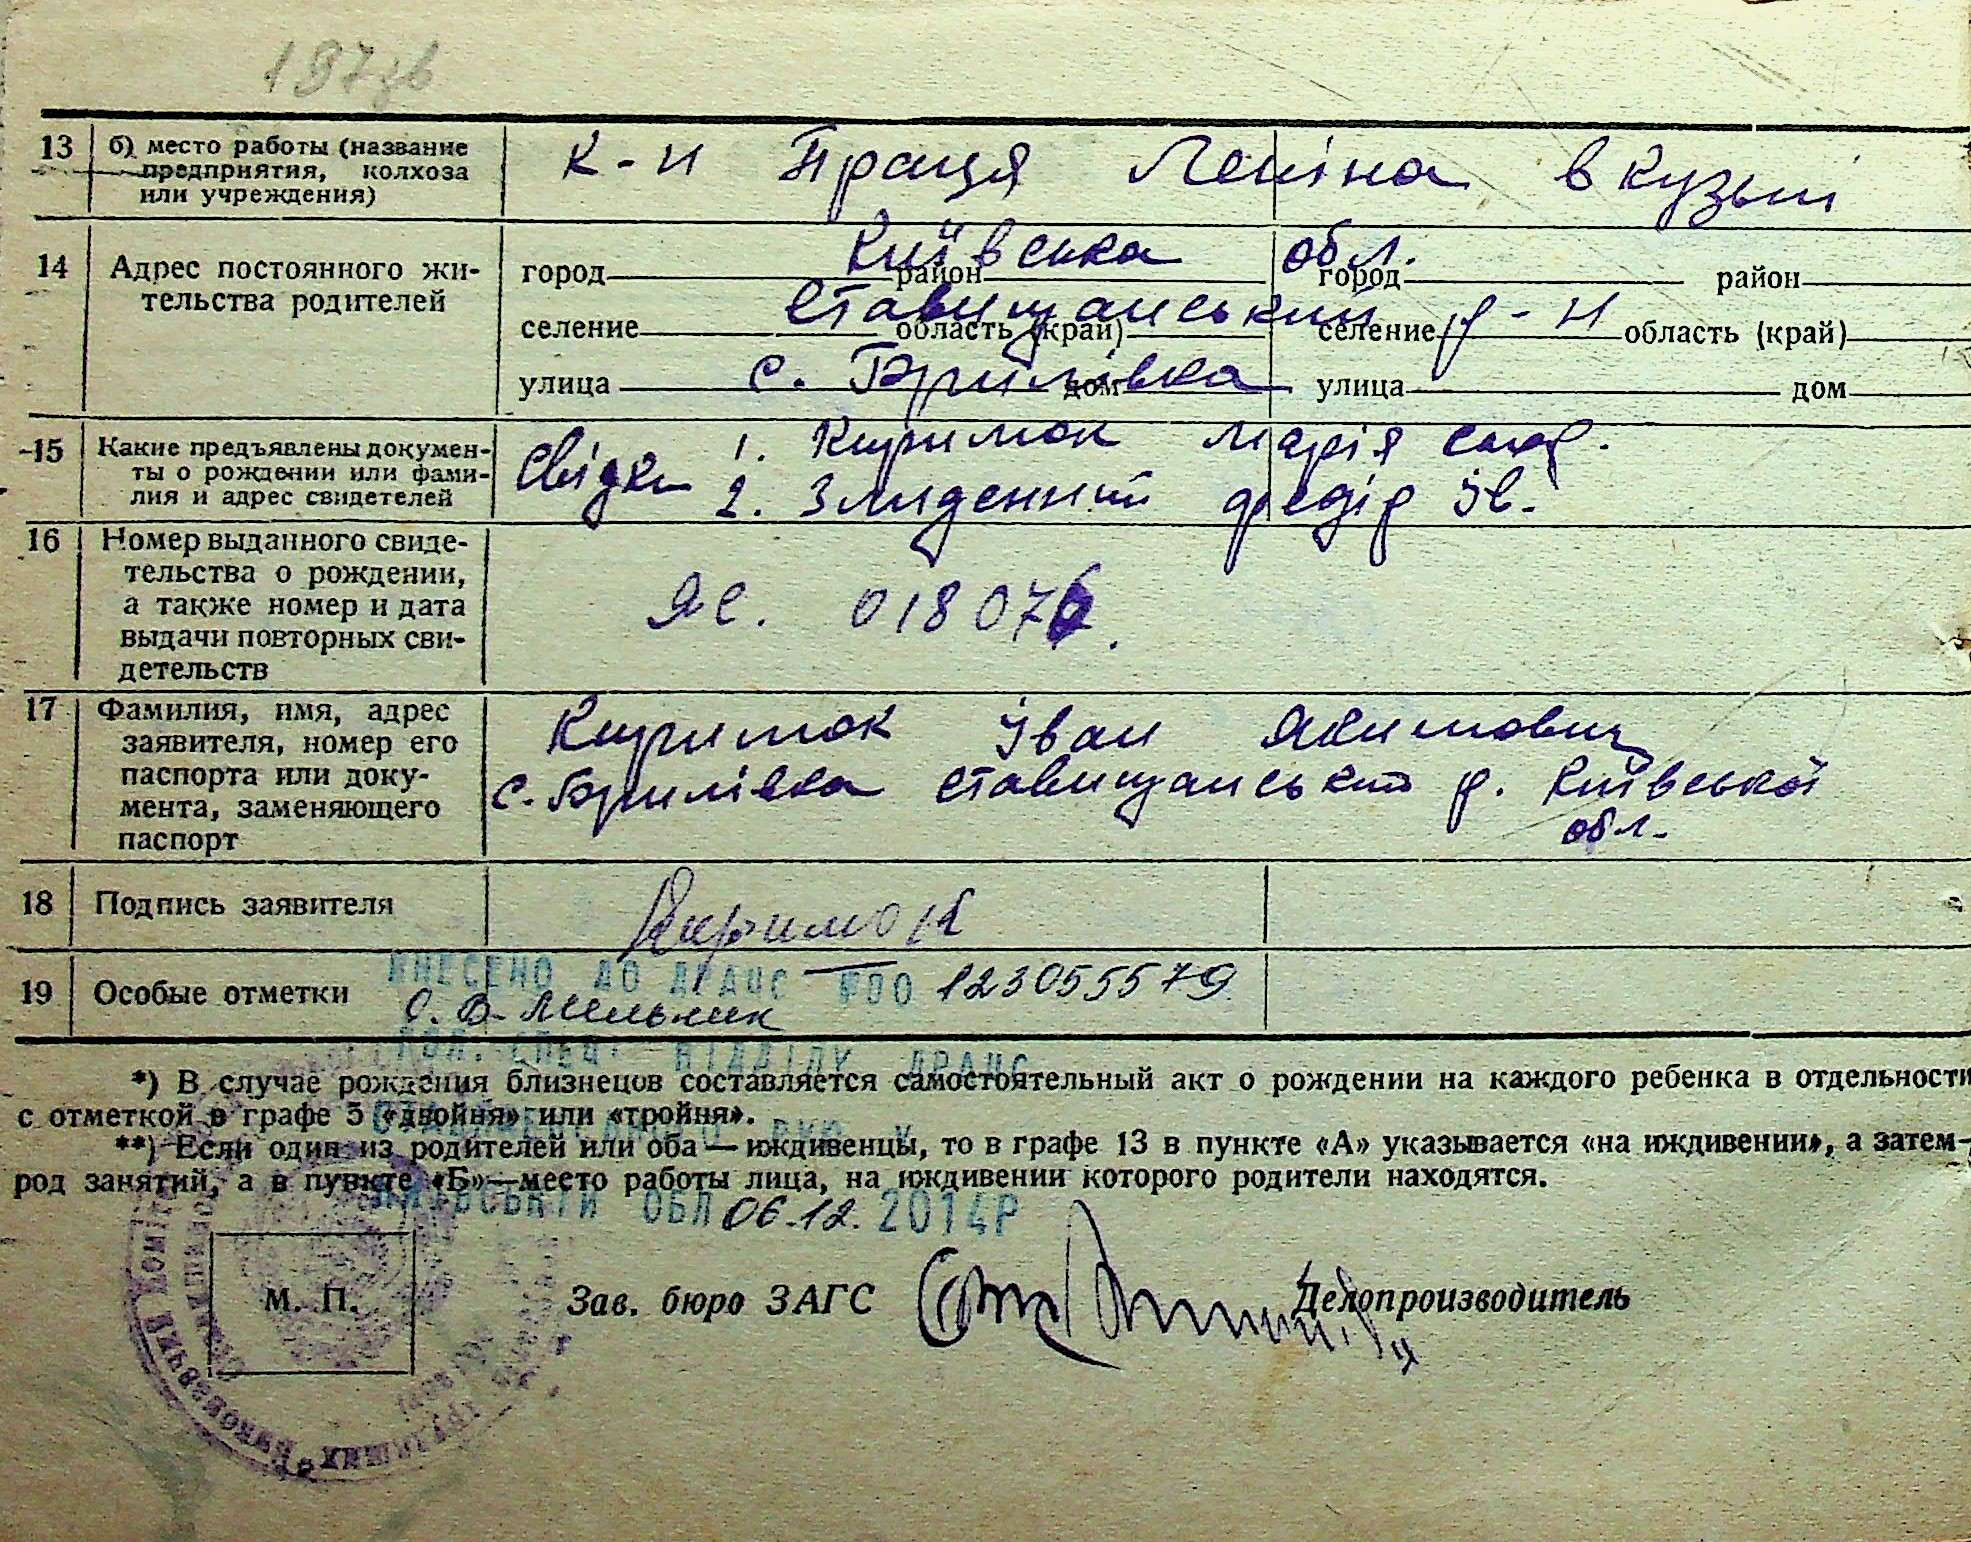 197зв
13 б) место работы (название предприятия, колхоза или учреждения)
к-п Праця Леніна в кузьні
14 Адрес постоянного жительства родителей
Київська обл.
город район город район
Ставищанський р-н
селение область (край) селение область (край)
с. Брилівка
улица дом улица дом
15 Какие предъявлены документы о рождении или фамилия и адрес свидетелей
Свідки 1. Киримок Марія
2. Злиденний Федір Ів.
16 Номер выданного свидетельства о рождении, а также номер и дата выдачи повторных свидетельств
ЯС. 018076.
17 Фамилия, имя, адрес заявителя, номер его паспорта или документа, заменяющего паспорт
Киримок Іван Якимович
с. Брилівка Ставищанський р. Київської
обл.
18 Подпись заявителя
Киримок
19 Особые отметки
ВНЕСЕНО ДО ДРАЦС 00123055579
О.В. Мельник
СПЕЦ. ВІДДІЛУ ДРАЦС
*) В случае рождения близнецов составляется самостоятельный акт о рождении на каждого ребенка в отдельности
с отметкой в графе 5 «двойня» или «тройня».
**) Если один из родителей или оба — иждивенцы, то в графе 13 в пункте «А» указывается «на иждивении», а затем
род занятий, а в пункте «Б»—место работы лица, на иждивении которого родители находятся.
ОБЛ 06.12. 2014Р
М. П.
Зав. бюро ЗАГС Делопроизводитель